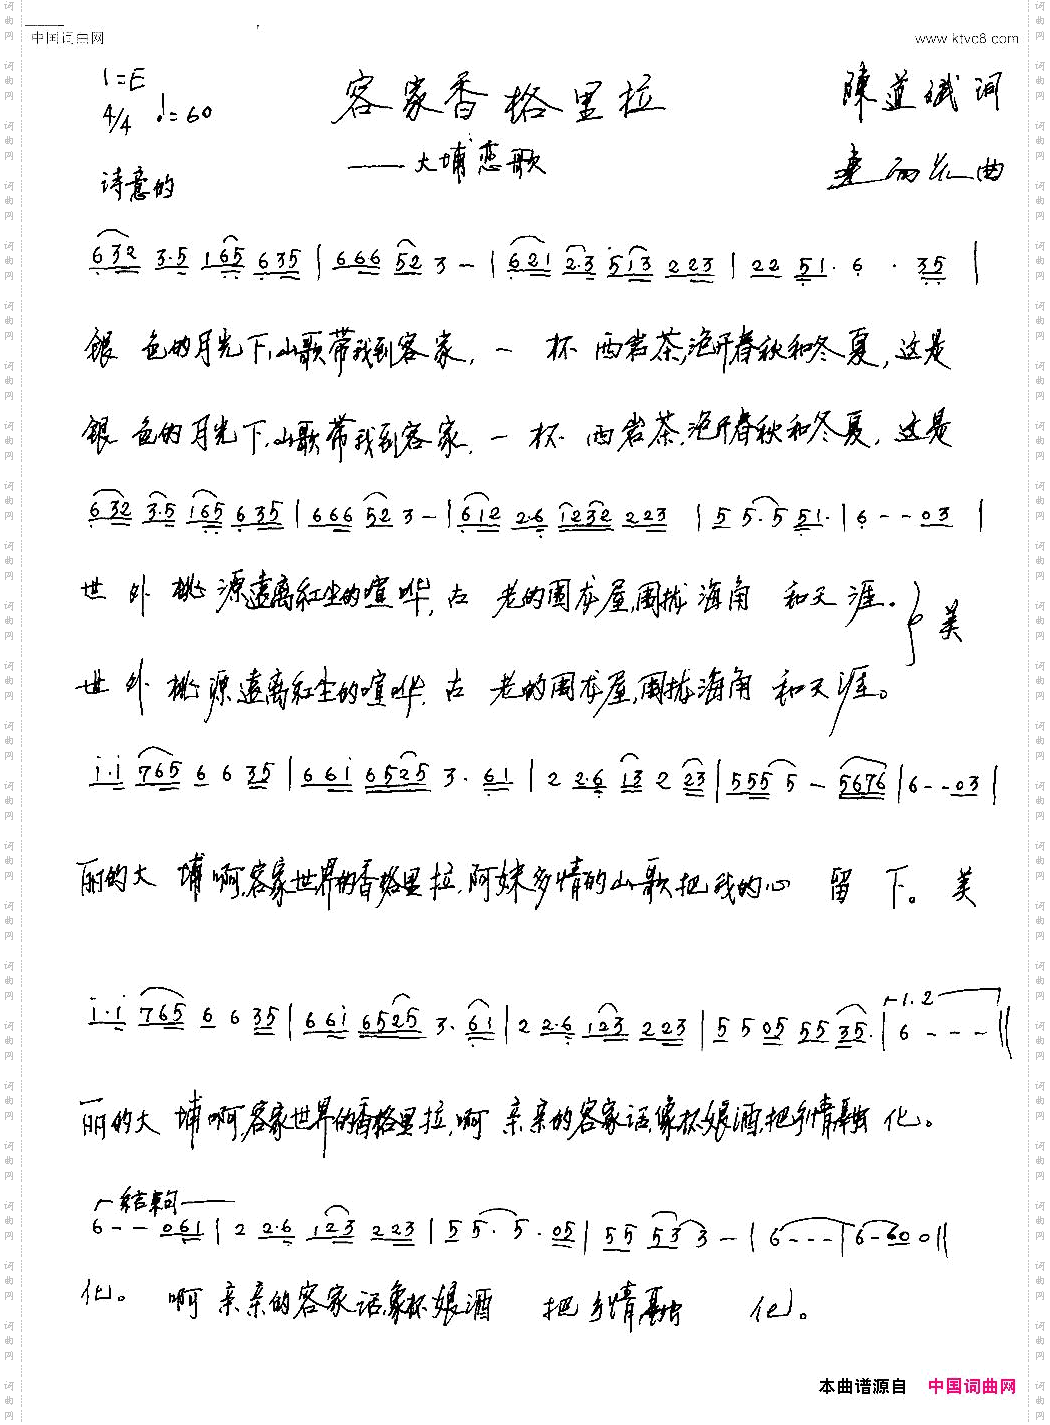 中国词曲网
www.ktvc8.com
1=E
4/4 ♩=60
诗意的
客家香格里拉
——大埔恋歌
陳道斌 词
曲
6 3 2 3·5 1 6 5 6 3 5 | 6 6 6 5 2 3 – | 6 2 1 2·3 5 1 3 2 2 3 | 2 2 5 1· 6 · 3 5 |
銀 色的月光下,山歌带我到客家, 一 杯 西岩茶,泡开春秋和冬夏, 这是
銀 色的月光下,山歌带我到客家, 一 杯 西岩茶,泡开春秋和冬夏, 这是
6 3 2 3·5 1 6 5 6 3 5 | 6 6 6 5 2 3 – | 6 1 2 2·6 1 2 3 2 2 2 3 | 5 5·5 5 1· | 6 - - 0 3 |
世 外 桃 源遠离紅尘的喧哗, 古 老的围龙屋,围拢海角 和天涯. 美
世 外 桃 源遠离紅尘的喧哗, 古 老的围龙屋,围拢海角 和天涯。
i·i 7 6 5 6 6 3 5 | 6 6 i 6 5 2 5 3· 6 1 | 2 2·6 1 3 2 2 3 | 5 5 5 5 – 5 6 7 6 | 6 - - 0 3 |
丽的大 埔啊,客家世界的香格里拉,阿妹多情的山歌把我的心 留 下。 美
i·i 7 6 5 6 6 3 5 | 6 6 i 6 5 2 5 3· 6 1 | 2 2·6 1 2 3 2 2 3 | 5 5 0 5 5 5 3 5· | 1.2 6 - - - ||
丽的大 埔啊,客家世界的香格里拉,啊 亲亲的客家话,象杯娘酒,把乡情融 化。
结束句
6 - - 0 6 1 | 2 2·6 1 2 3 2 2 3 | 5 5· 5· 0 5 | 5 5 5 3 3 – | 6 - - - | 6 - 6 0 0 ||
化。 啊 亲亲的客家话,象杯娘酒 把 乡情融 化。
本曲谱源自 中国词曲网